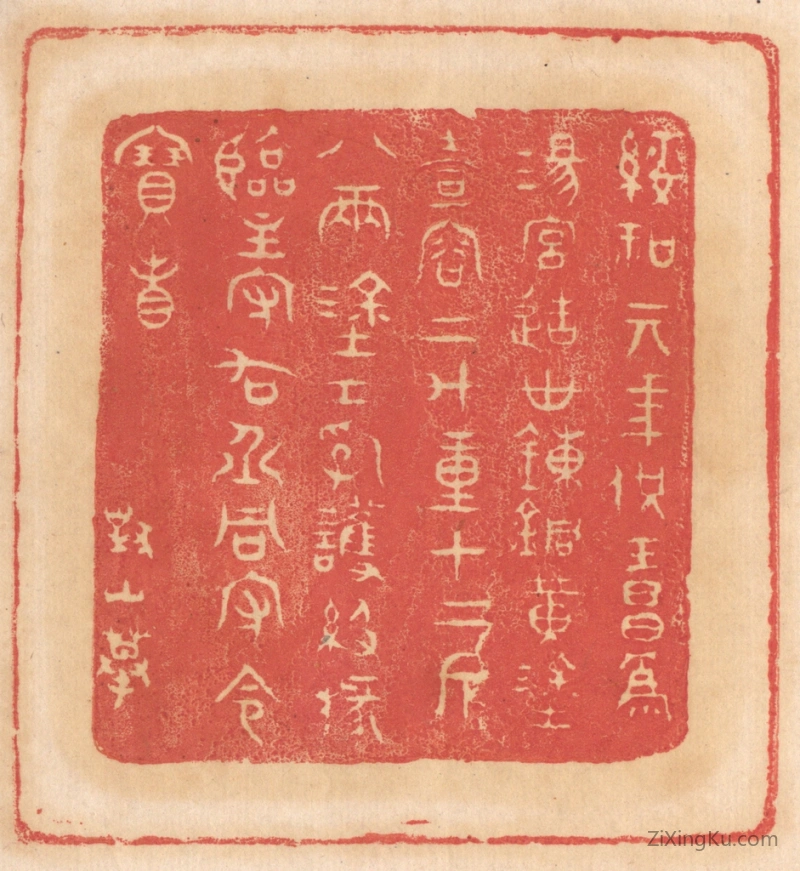 綏和元年供工昌為
湯官造卅鍊銅黃塗
壺容二斗重十二斤
八兩塗工乳護級掾
臨主守右丞同守令
寶省
山
ZiXingKu.com